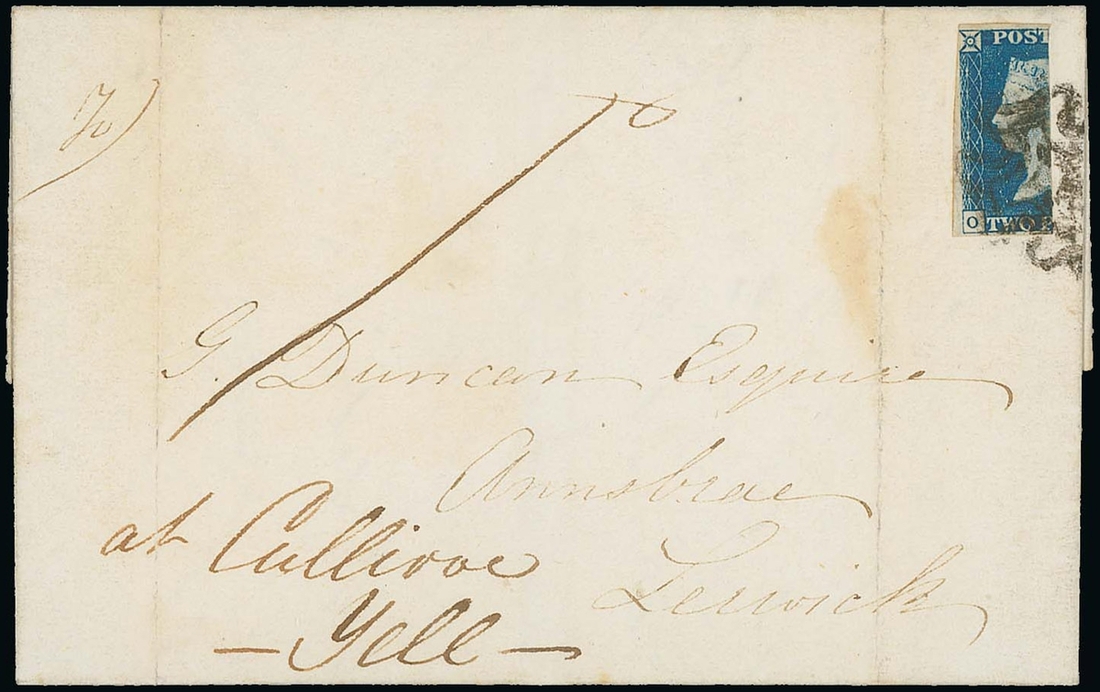 POST
O
TWO P
G. Duncan Esquire
Annsbrae
Lerwick
at Cullivoe
— Yell —